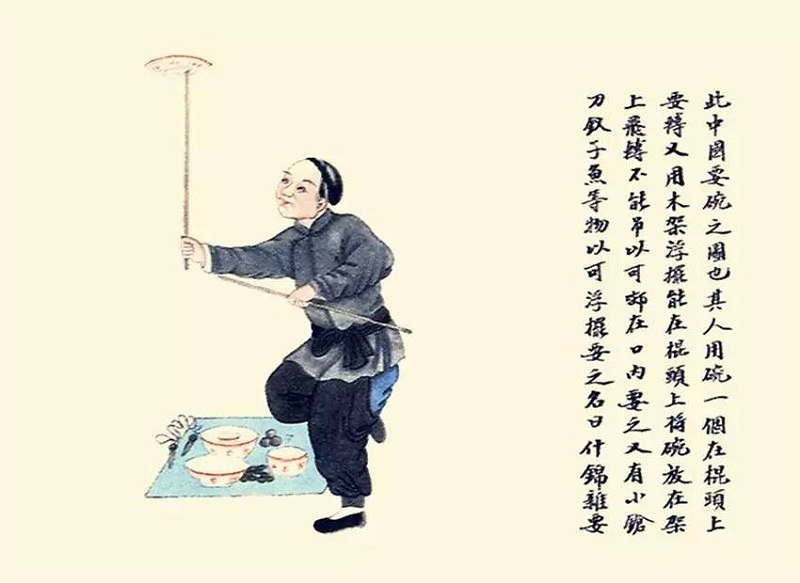 此中國耍碗之圖也其人用碗一個在棍頭上
耍轉又用木架浮擺能在棍頭上將碗放在架
上飛轉不能吊以可在口內耍之又有小鎗
刀釵子魚等物以可浮擺耍之名曰什錦雜耍